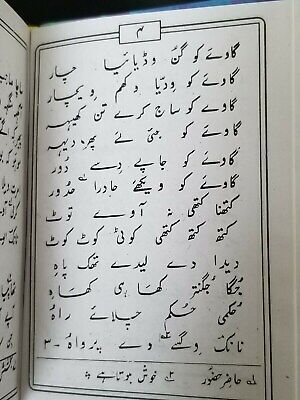 ۴
گاوئے کو گُن وڈیائیا چار
گاوئے کو وِدیا وکھم ویچار
گاوئے کو ساج کرے تن کھیہہ
گاوئے کو جی لے پھر دیہہ
گاوئے کو جاپے دِسے دُور
گاوئے کو ویکھے حادرا حدُور
کتھنا کتھی نہ آوے توٹ
کتھ کتھ کتھی کوٹی کوٹ کوٹ
دیدا دے لیدے تھک پاہِ
جُگا جُگنتر کھاہی کھاہِ
حُکمی حُکم چلائے راہُ
نانک وِگسے وے پرواہُ -۳
حاضر حضُور ۲ خوش ہوتا ہے